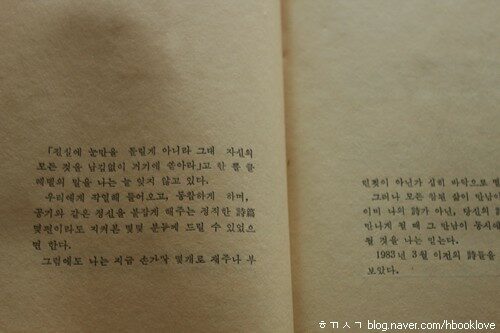 「진실에 눈만을 돌릴게 아니라 그대 자신의
모든 것을 남김없이 거기에 쏟아라」고 한 를
의 말을 나는 늘 잊지 않고 있다.
우리에게 작열해 들어오고, 통합하게 하며,
공기와 같은 정신을 붙잡게 해주는 정직한 詩篇
몇편이라도 지켜본 몇몇 분들에 드릴 수 있었으
면 한다.
그럼에도 나는 지금 손가락 몇개로 재주나 부
린것이 아닌가 심히 바탁으로
그러나 모든 삶이 만남이
이미 나의 詩가 아닌, 당신의
만나게 될 때 그 만남이 동시에
될 것을 나는 믿는다.
1983년 3월 이전의 詩들을
보았다.
ㅎㄲㅅㄱ / blog.naver.com/hbooklove